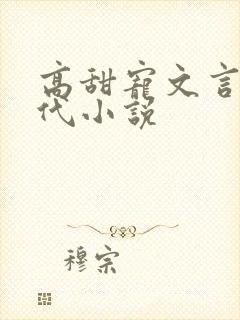 高甜寵文言
代小說
穆宗